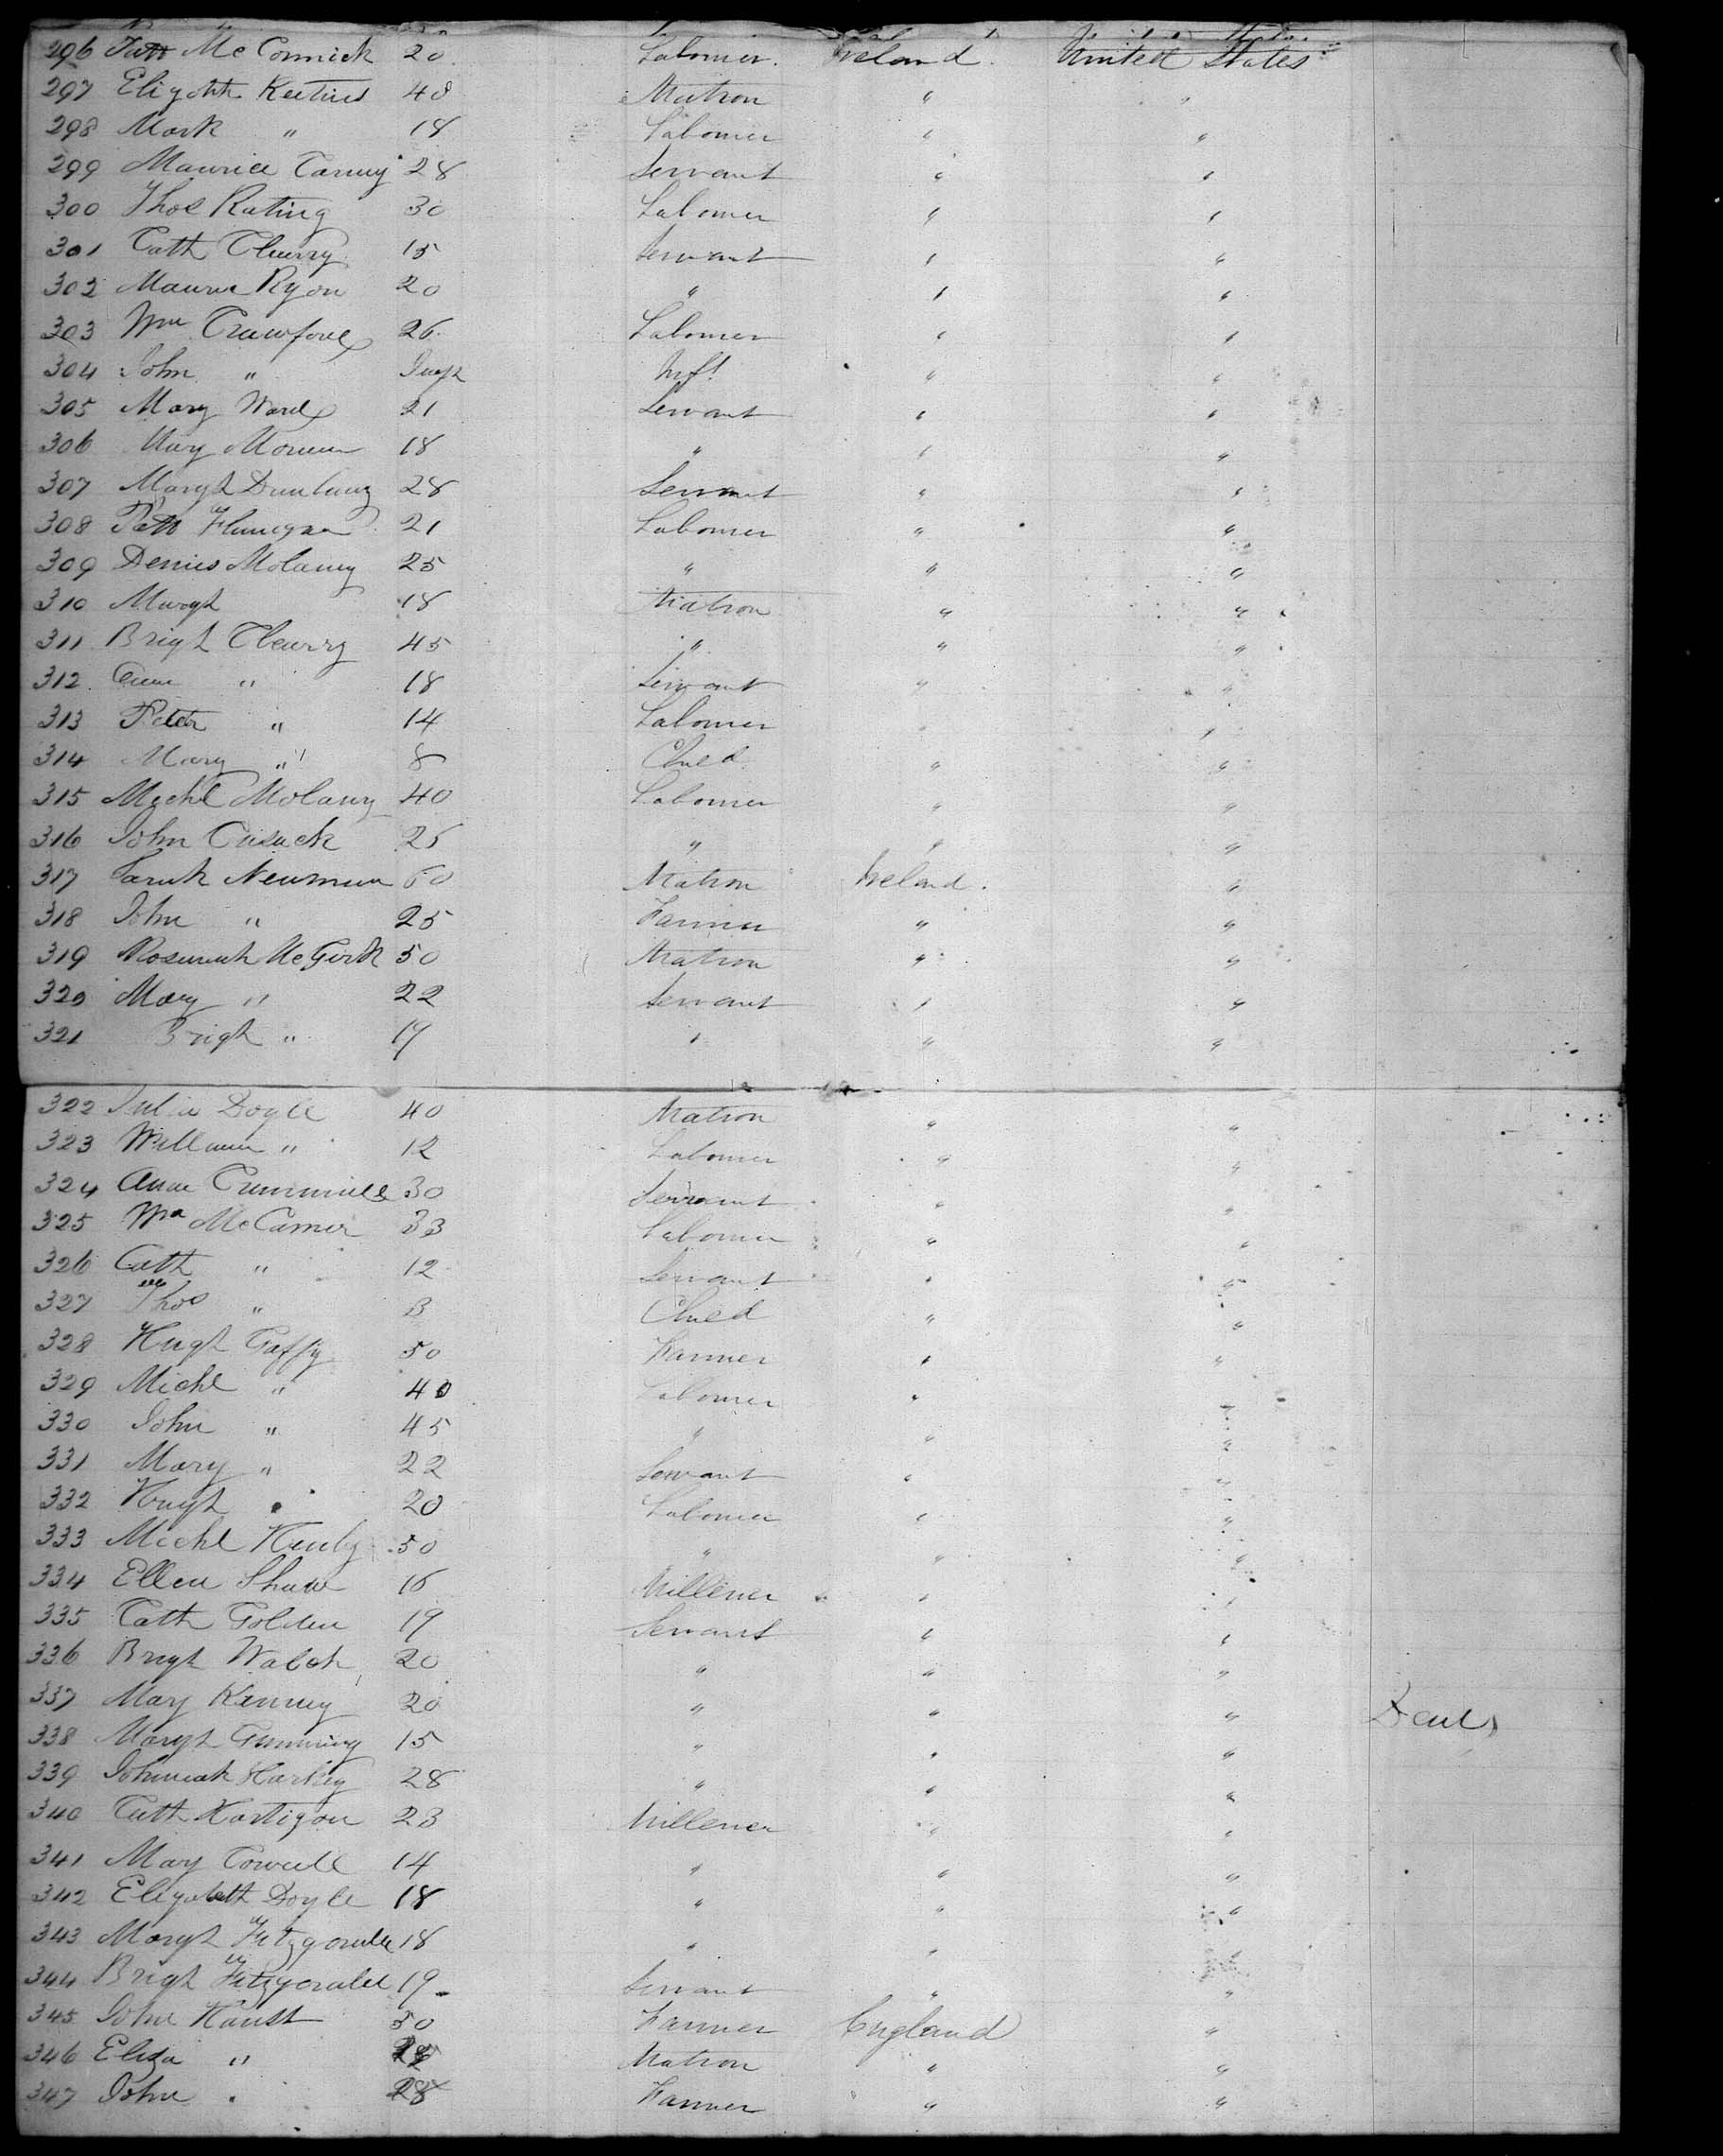 296 Patt McCormick 20 Labourer. Ireland. United States
297 Elizabth 40 Matron " "
298 Mark " 18 Labourer " "
299 Maurice 28 Servant " "
300 Thos Kating 30 Labourer " "
301 Cath Cleurry 15 Servant " "
302 Maurice Ryan 20 " " "
303 Wm Crawford 26 Labourer " "
304 John " Inft " "
305 Mary Ward 21 Servant " "
306 Mary 18 " " "
307 Margt 28 Servant " "
308 Patt Flanigan 21 Labourer " "
309 Dennis Molaney 25 " " "
310 Margt 18 Matron " "
311 Bright Cleurry 45 " " "
312 Ann " 18 Servant " "
313 Peter " 14 Labourer " "
314 Mary " 8 Child " "
315 Michl Molany 40 Labourer " "
316 John Cusack 25 " " "
317 Sarah Newman 60 Matron Ireland. "
318 John " 25 Farmer " "
319 Rosannah McGirk 50 Matron " "
320 Mary " 22 Servant " "
321 Bright " 19 " " "
322 Julia Doyle 40 Matron " "
323 William " 12 Labourer " "
324 Ann 30 Servant " "
325 Wm 33 Labourer " "
326 Cath " 12 Servant " "
327 Thos " 3 Child " "
328 Hugh Gaffy 50 Farmer " "
329 Michl " 40 Labourer " "
330 John " 45 " " "
331 Mary " 22 Servant " "
332 Hugh " 20 Labourer " "
333 Michl 50 " " "
334 Ellen Shaw 16 Millener " "
335 Cath Golden 19 Servant " "
336 Bright Walsh 20 " " "
337 Mary Kenney 20 " " "
338 Margt 15 " " "
339 Johannah Harley 28 " " "
340 Cath Hartigan 23 Millener " "
341 Mary 14 " " "
342 Elizabeth Doyle 18 " " "
343 Margt Fitzgerald 18 " " "
344 Bright Fitzgerald 19 Servant " "
345 John 50 Farmer England "
346 Eliza " Matron " "
347 John " 28 Farmer " "